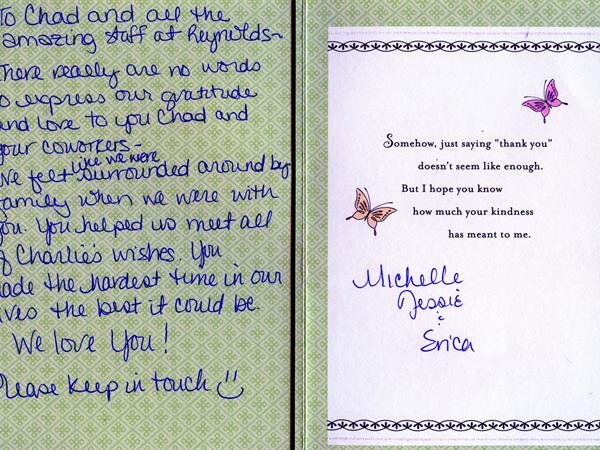 To Chad and all the
amazing staff at Reynolds~
There really are no words
to express our gratitude
and love to you Chad and
your coworkers-
like we were
We felt surrounded around by
family when we were with
you. You helped us meet all
of Charlie's wishes. You
made the hardest time in our
lives the best it could be.
We love You!
Please keep in touch
Somehow, just saying "thank you"
doesn't seem like enough.
But I hope you know
how much your kindness
has meant to me.
Michelle
Jessie
&
Erica